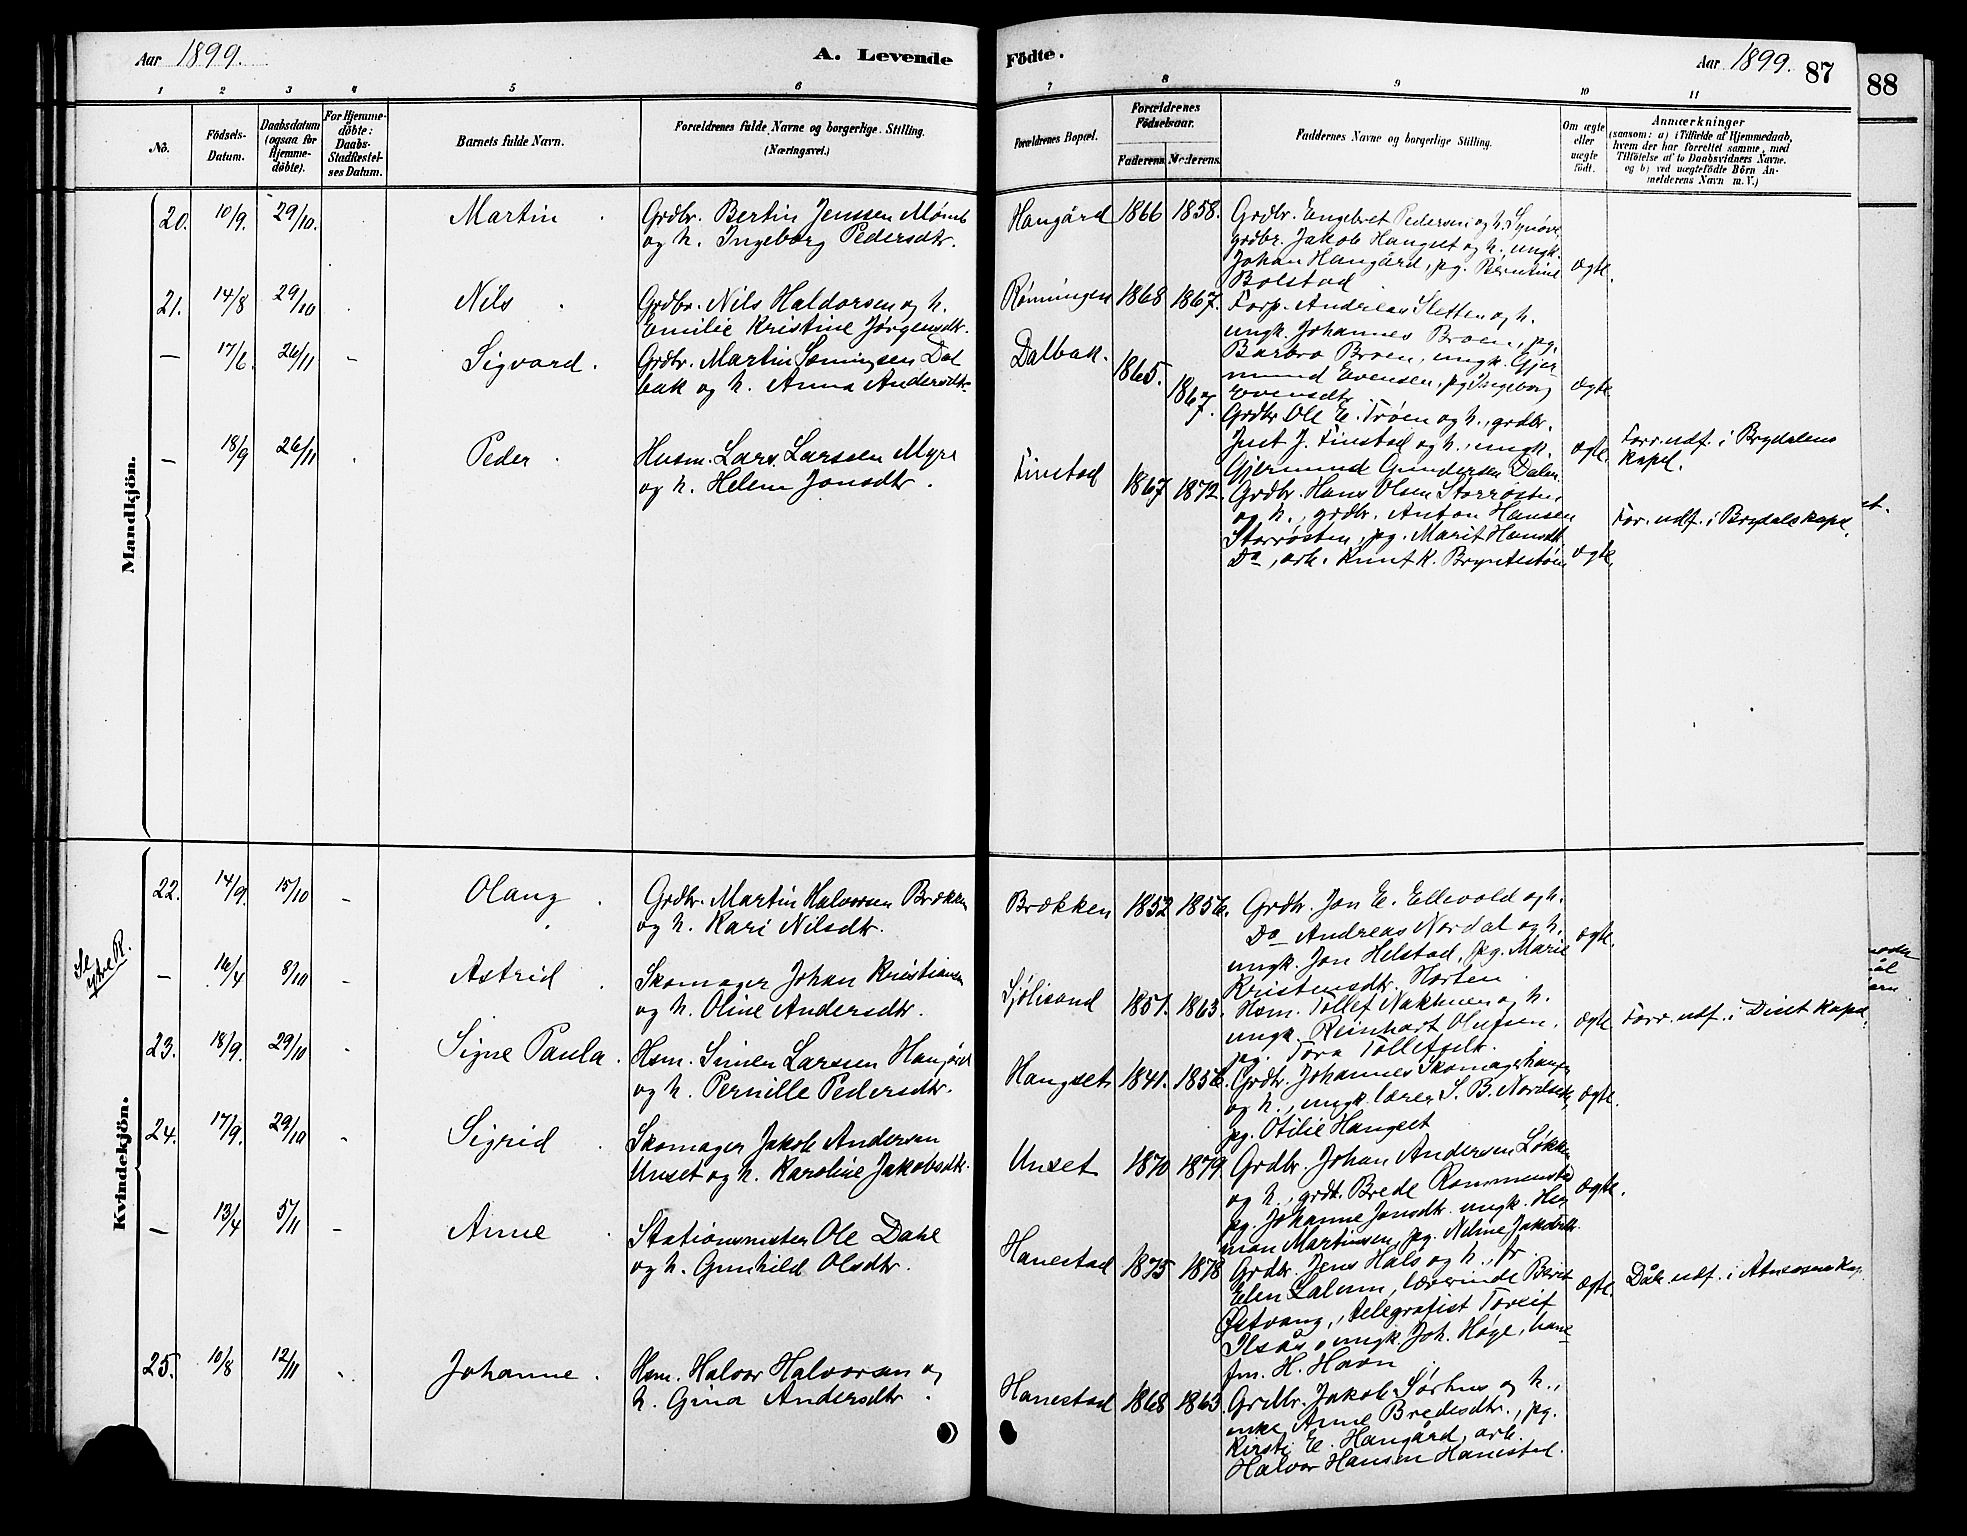 Aar 1899.
A. Levende
Födte.
Aar 1899.
87
88
1 2 3 4 5 6 7 8 9 10 11
No.
Födsels-Datum.
Daabsdatum (ogsaa for Hjemme-døbte).
For Hjemme-døbte: Daabs-Stadfæstel-ses Datum.
Barnets fulde Navn.
Forældrenes fulde Navne og borgerlige Stilling.
(Næringsvei.)
Forældrenes Bopæl.
Forældrenes Födselsaar.
Faderens. Moderens.
Faddernes Navne og borgerlige Stilling.
Om ægte eller uægte født.
Anmærkninger
(saasom: a) i Tilfælde af Hjemmedaab,
hvem der har forrettet samme, med
Tilføielse af to Daabsvidners Navne.
og b) ved uægtefødte Börn An-
melderens Navn m. V.)
Mandkjön.
20. 10/9. 29/10. Martin
Grdbr. Bertin Jenssen
og h. Ingeborg Pedersdtr.
Hangård 1866 1858.
Grdbr. Engebret Pedersen og h. Synøve
grdbr. Jakob Hangset og h., ungk.
Johan Hangård, pg. Berntine
Bolstad
ægte.
21. 14/8 29/10 Nils
Grdbr. Nils Haldorsen og h.
Emilie Kristine Jørgensdtr.
Rønningen 1868 1867.
Forp. Andreas Sletten og h.
ungk. Johannes Broen, pg.
Barbro Broen, ungk. Gjer-
mund Evensen, pg. Ingeborg
Evensdtr.
ægte
— 17/6. 26/11 - Sigvard.
Grdbr. Martin Somingsen Dal
bak og h. Anna Andersdtr.
Dalbak. 1865. 1867.
Grdbr. Ole E. Trøen og h., grdbr.
Just J. Finstad og h., ungk.
Gjermund Gundersen Dalen
ægte.
Forr. udf. i Brydalens
Kapel.
— 18/9 26/11 Peder.
Husm. Lars Larssen Myre
og h. Helene Jonsdtr.
Finstad 1867 1872.
Grdbr. Hans Olsen Storrøsten
og h., grdbr. Anton Hansen
Storrøsten, pg. Marit Hansdtr.
Do, arb. Knut K.
ægte.
For. udf. i Brydals kapel.
Kvindekjön.
Se ytre R.
22. 14/9. 15/10 - Olaug
Grdbr. Martin Halvorsen Brækken
og h. Kari Nilsdtr.
Brækken 1852 1856.
Grdbr. Jon E. Ellevold og h.
Do Andreas Nordal og h.
ungk. Jon Helstad, pg. Marie
Kristensdtr. Horten
ægte.
— 16/4 8/10 - Astrid
Skomager Johan Kristiansen
og h. Oline Andersdtr.
Sjølisand 1851. 1863.
Hsm. Tollef Nakhuen og h.
ungk. Reinhart Olufsen.
pg. Tora Tollefsdtr.
ægte
Forr. udf. i Diset kapel.
23. 18/9. 29/10 - Signe Paula.
Hsm. Simen Larsen Hangård
og h. Pernille Pedersdtr.
Hangset 1841. 1856.
Grdbr. Johannes Skomagerhaugen
og h., ungk. lærer S. B. Nordset,
pg. Otilie Hangset
ægte.
24. 17/9. 29/10 - Sigrid
Skomager Jakob Andersen
Unset og h. Karoline Jakobsdtr.
Unset 1870 1879.
Grdbr. Johan Andersen Løkken
og h., grdb. Brede Rommenstad
pg. Johanne Jonsdtr. ungk. Her
man Martinsen, pg. Neline Jakobsdtr.
ægte.
— 13/4 5/11 - Anne
Stationsmester Ole Dahl
og h. Gunhild Olsdtr.
Hanestad 1875 1878
Grdbr. Jens Hals og h., fr.
Elen Lalum, lærerinde Berit
Østvang, telegrafist Toreif
Ilsås, ungk. Joh. Høye, bane
fm. H. Havn.
ægte.
Dåb. udf. i Atneosen kap.
25. 10/8 12/11 - Johanne.
Hsm. Halvor Halvorsen og
h. Gina Andersdtr.
Hanestad 1868 1863.
Grdbr. Jakob Sørhus og h.,
enke Anne Bredesdtr., pg.
Kirsti E. Hangård, arb.
Halvor Hansen Hanestad.